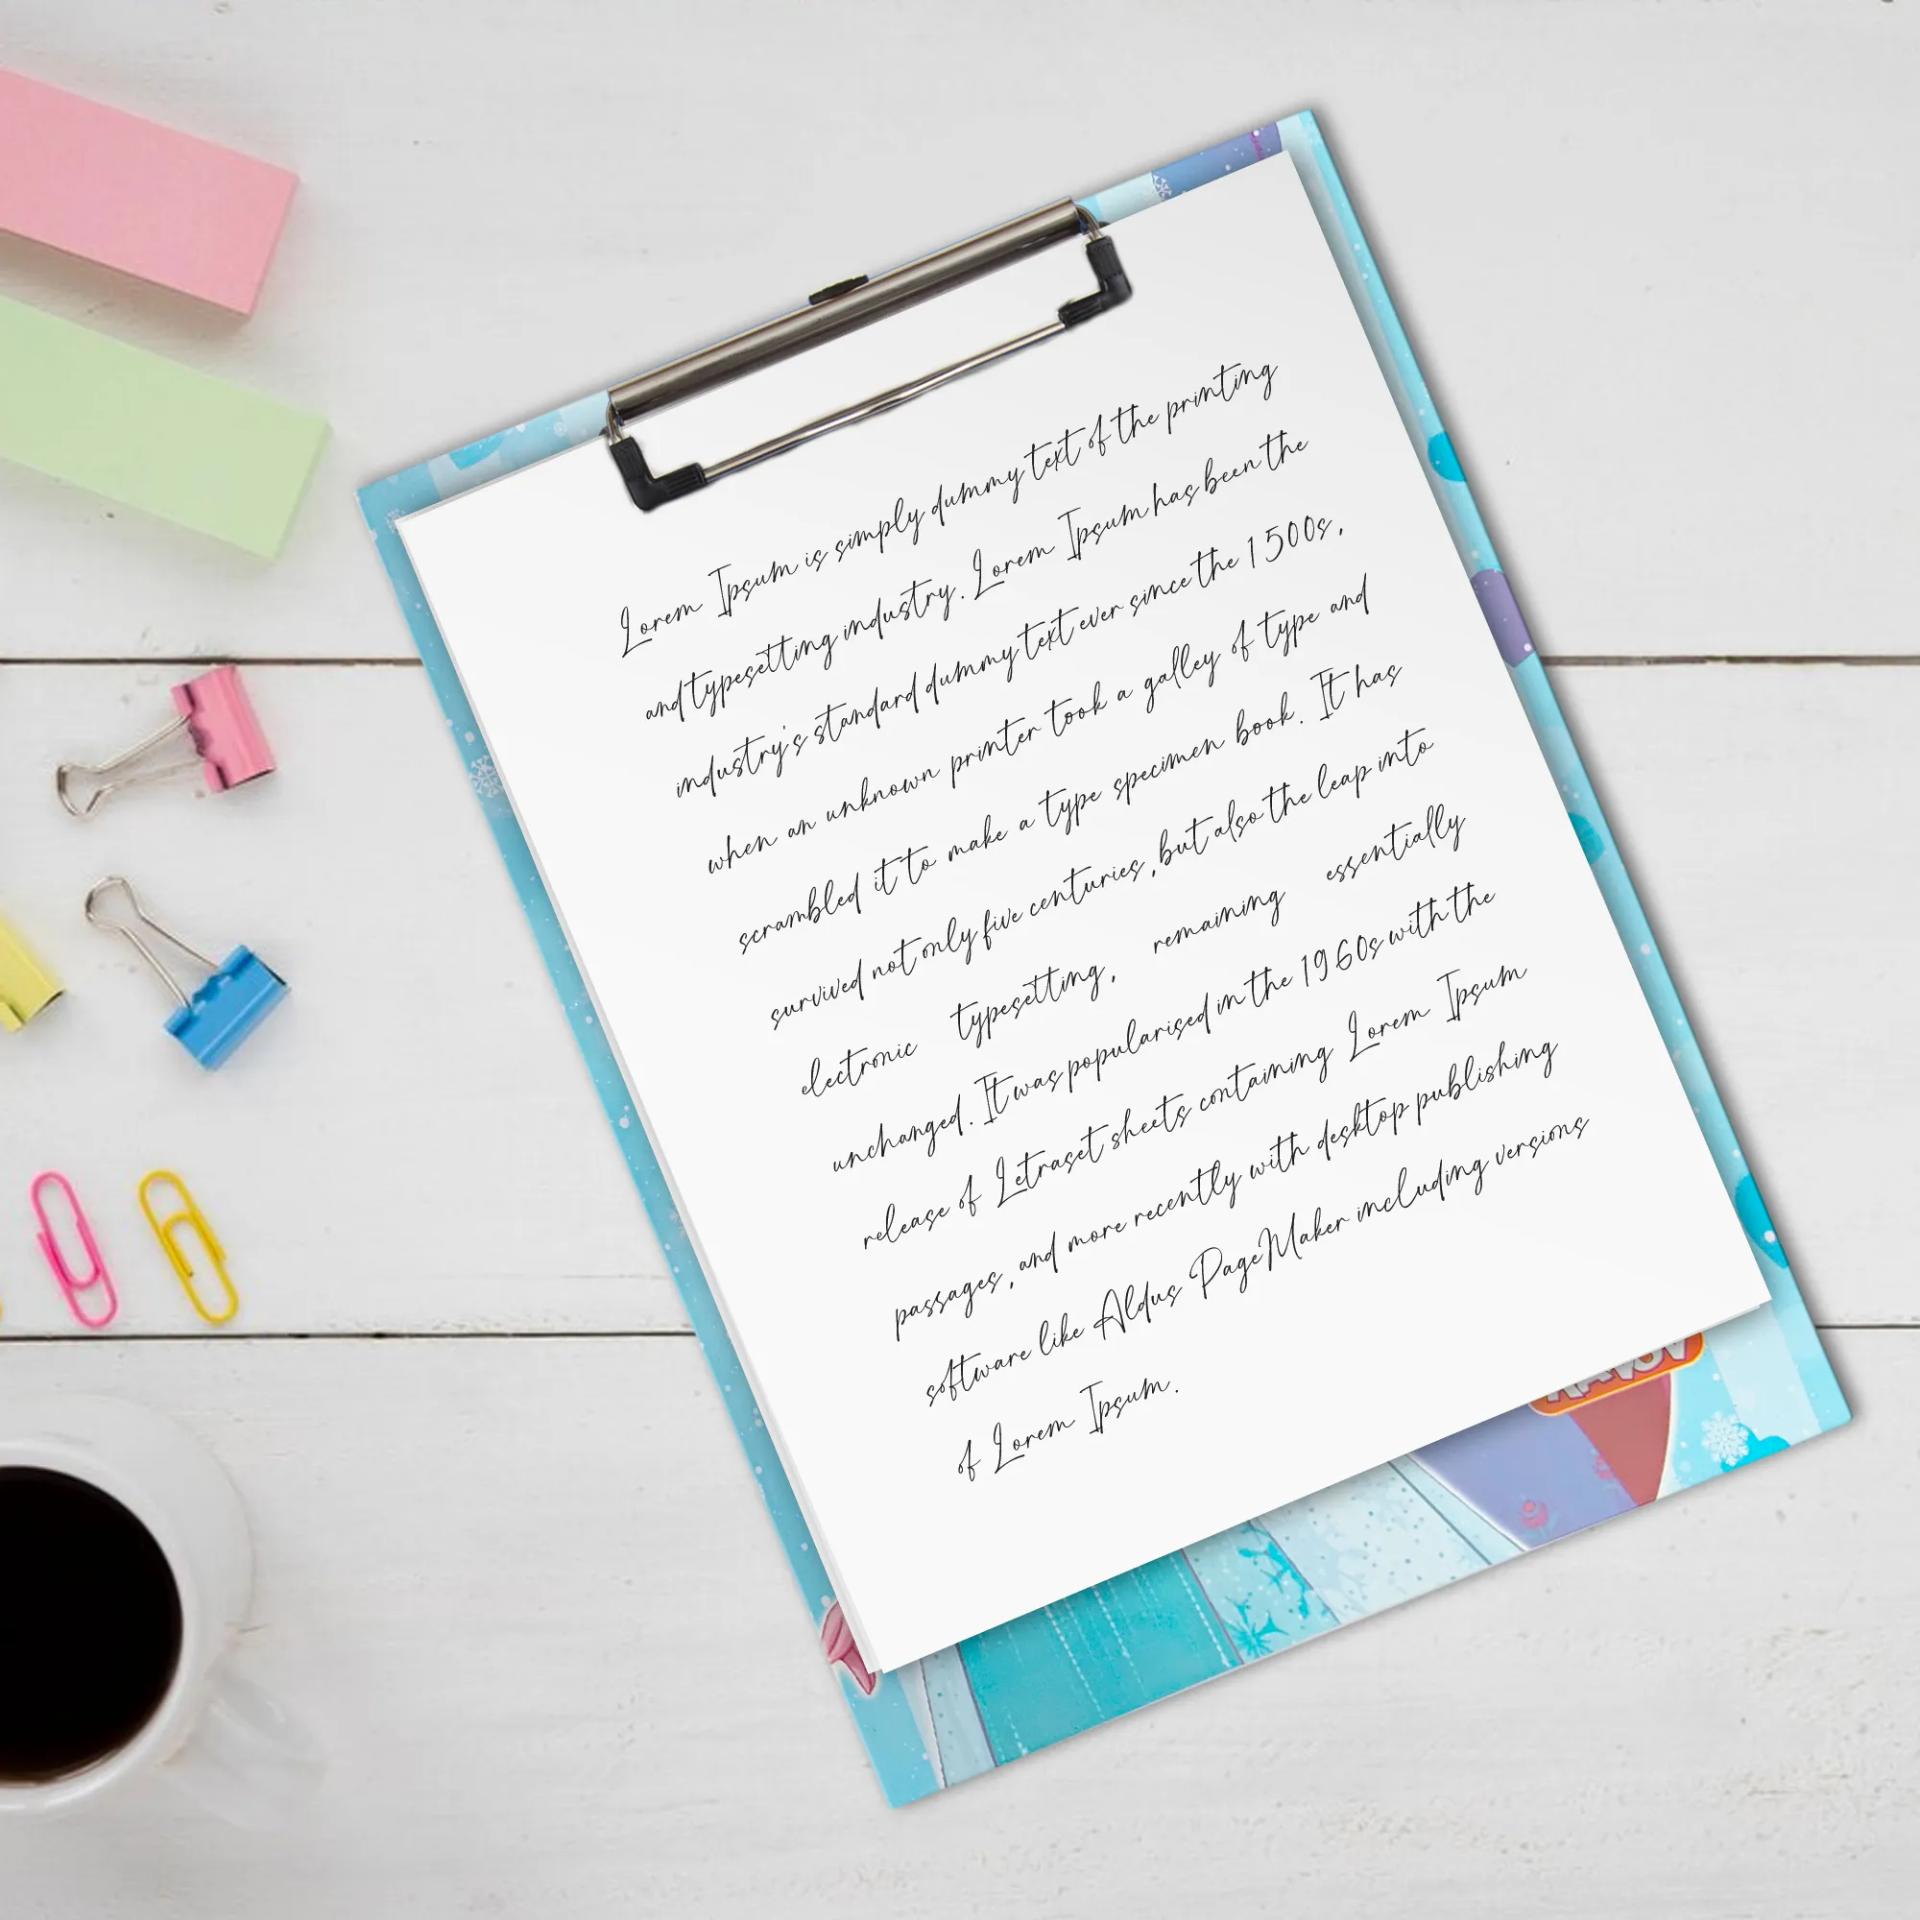 Lorem Ipsum is simply dummy text of the printing
and typesetting industry. Lorem Ipsum has been the
industry's standard dummy text ever since the 1500s,
when an unknown printer took a galley of type and
scrambled it to make a type specimen book. It has
survived not only five centuries, but also the leap into
electronic typesetting, remaining essentially
unchanged. It was popularised in the 1960s with the
release of Letraset sheets containing Lorem Ipsum
passages, and more recently with desktop publishing
software like Aldus PageMaker including versions
of Lorem Ipsum.